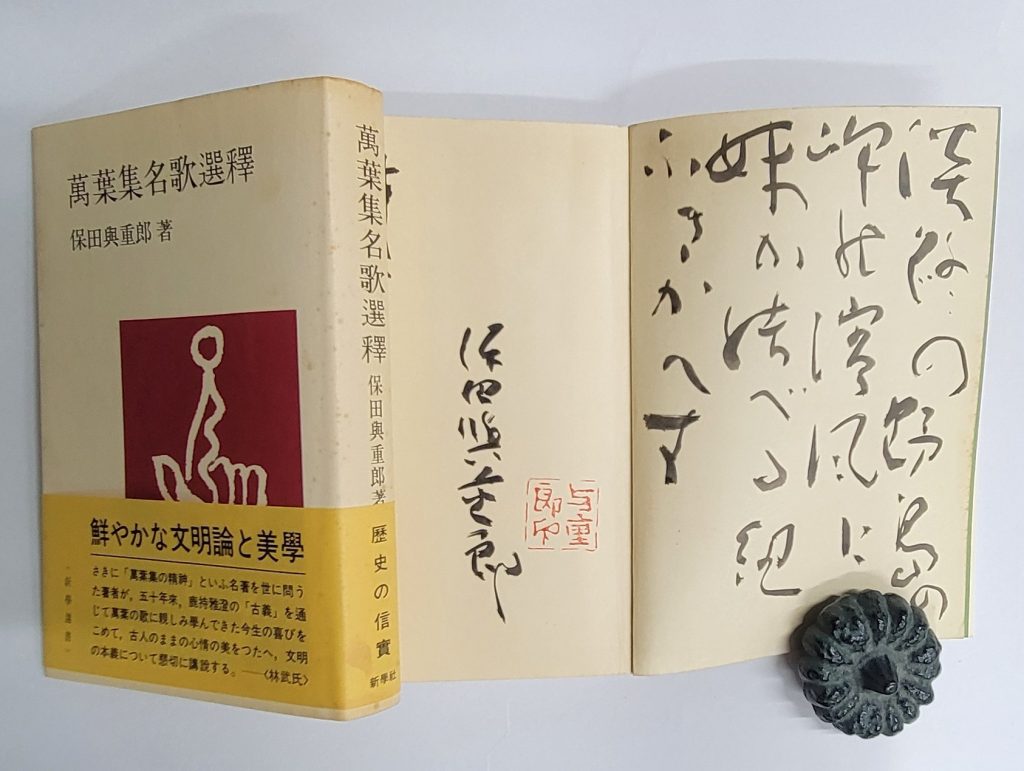 萬葉集名歌選釋
保田與重郎 著
鮮やかな文明論と美學
さきに「萬葉集の精神」といふ名著を世に問う
た著者が、五十年来、鹿持雅澄の「古義」を通
じて萬葉の歌に親しみ學んできた今生の喜びを
こめて、古人のままの心情の美をつたへ、文明
の本義について懇切に講説する。――〈林武氏〉
・新學選書・
萬葉集名歌選釋 保田與重郎著
歴史の信實
新學社
淡路の野島の
崎能濱風に
妹か結べる紐
ふきかへす
保田與重郎
与重郎印